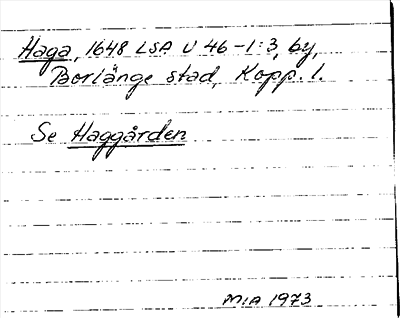 Haga, 1648 LSA U 46-1:3, by,
Borlänge stad, Kopp. l.
Se Haggården
MIA 1973